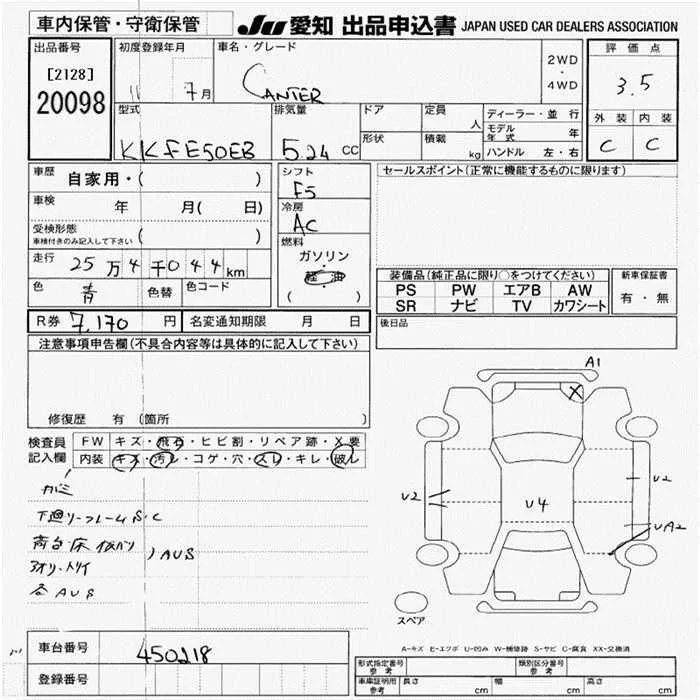 車内保管・守衛保管 JU 愛知 出品申込書 JAPAN USED CAR DEALERS ASSOCIATION
出品番号
[2128]
20098
初度登録年月
11 7月
車名・グレード
CANTER
2WD
・
4WD
評価点
3.5
外装 内装
C C
型式
KKFE50EB
排気量
5.24 CC
ドア
形状
定員 人
積載 kg
ディーラー・並行
モデル年式 年
ハンドル 左・右
車歴 自家用・( )
車検 年 月( 日)
受検形態
車検付きのみ記入して下さい ( )
走行 25万4千044km
色 青 色替 色コード
シフト
F5
冷房
AC
燃料
ガソリン
・
軽油
( )
セールスポイント(正常に機能するものに限ります)
装備品(純正品に限り○をつけてください)
PS PW エアB AW
SR ナビ TV カワシート
新車保証書
有・無
R券 7,170 円 名変通知期限 月 日
後日品
注意事項申告欄(不具合内容等は具体的に記入して下さい)
修復歴 有(箇所 )
検査員
記入欄
FW キズ・飛石・ヒビ割・リペア跡・X要
内装 キズ・汚レ・コゲ・穴・スレ・キレ・破レ
下廻リーフレームS・C
荷台・床
AUS
アオリ・トリイ
各AUS
A1
X
U2
U4
U2
UA2
スペア
A-キズ E-エクボ U-凹み W-補修跡 S-サビ C-腐食 XX-交換済
車台番号 450218
登録番号
形式指定番号
参考
類別区分番号
参考
車庫証明用
参考
長さ cm 幅 cm 高さ cm